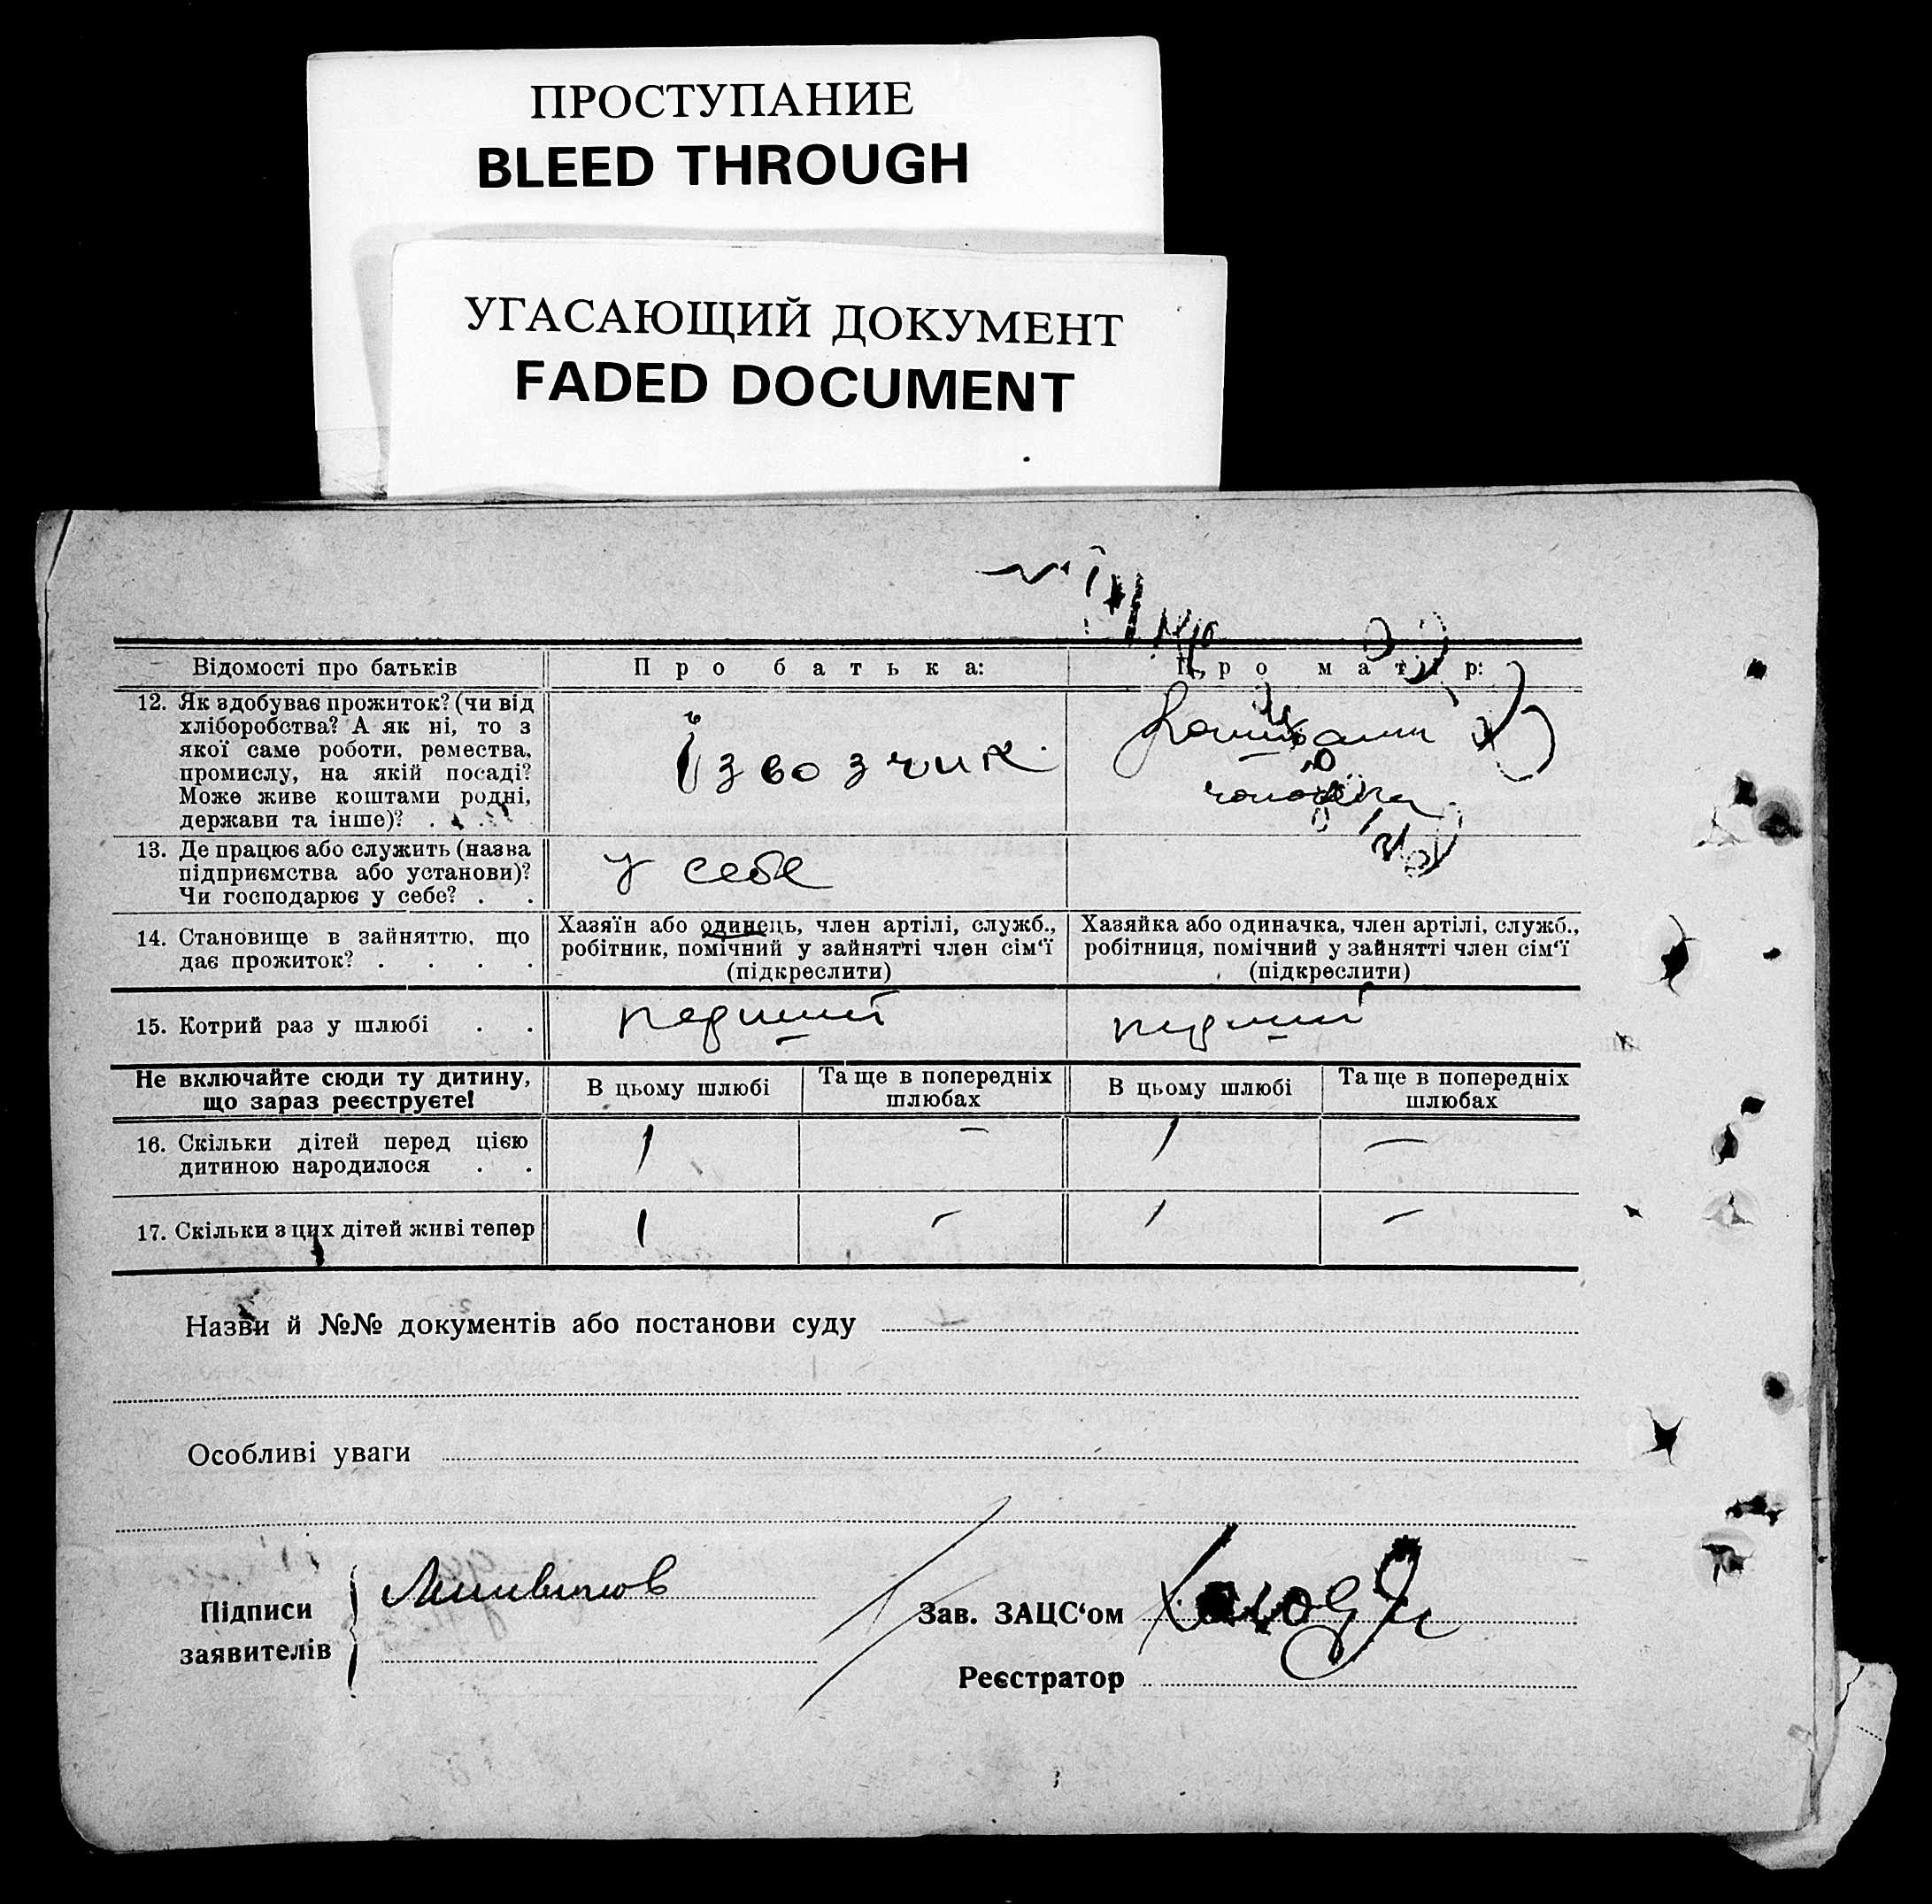 ПРОСТУПАНИЕ
BLEED THROUGH
УГАСАЮЩИЙ ДОКУМЕНТ
FADED DOCUMENT
Відомості про батьків
Про батька:
Про матір:
12. Як здобуває прожиток? (чи від
хліборобства? А як ні, то з
якої саме роботи, ремества,
промислу, на якій посаді?
Може живе коштами родні,
держави та інше)? .
Ізвозчик
коштами
чоловіка
13. Де працює або служить (назва
підприємства або установи)?
Чи господарює у себе? . .
у себе
14. Становище в зайняттю, що
дає прожиток? . . . .
Хазяїн або одинець, член артілі, служб.,
робітник, помічний у зайнятті член сім'ї
(підкреслити)
Хазяйка або одиначка, член артілі, служб.,
робітниця, помічний у зайнятті член сім'ї
(підкреслити)
15. Котрий раз у шлюбі . .
перший
перший
Не включайте сюди ту дитину,
що зараз реєструєте!
В цьому шлюбі
Та ще в попередніх
шлюбах
В цьому шлюбі
Та ще в попередніх
шлюбах
16. Скільки дітей перед цією
дитиною народилося . .
1
—
1
—
17. Скільки з цих дітей живі тепер
1
—
1
—
Назви й №№ документів або постанови суду
Особливі уваги
Підписи
заявителів
Зав. ЗАЦС'ом
Реєстратор